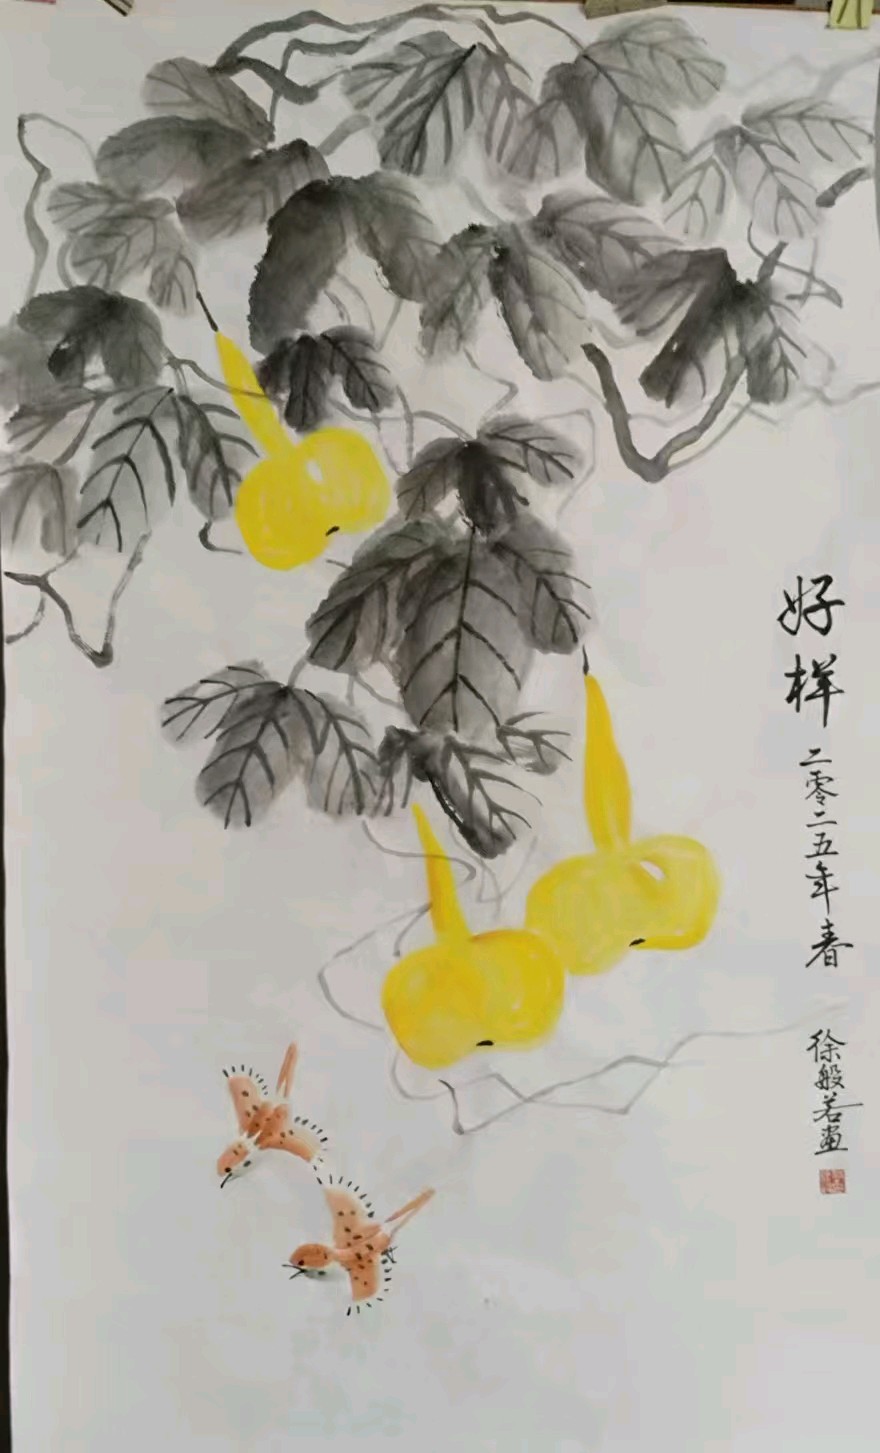 好样
二零二五年春
徐般若画